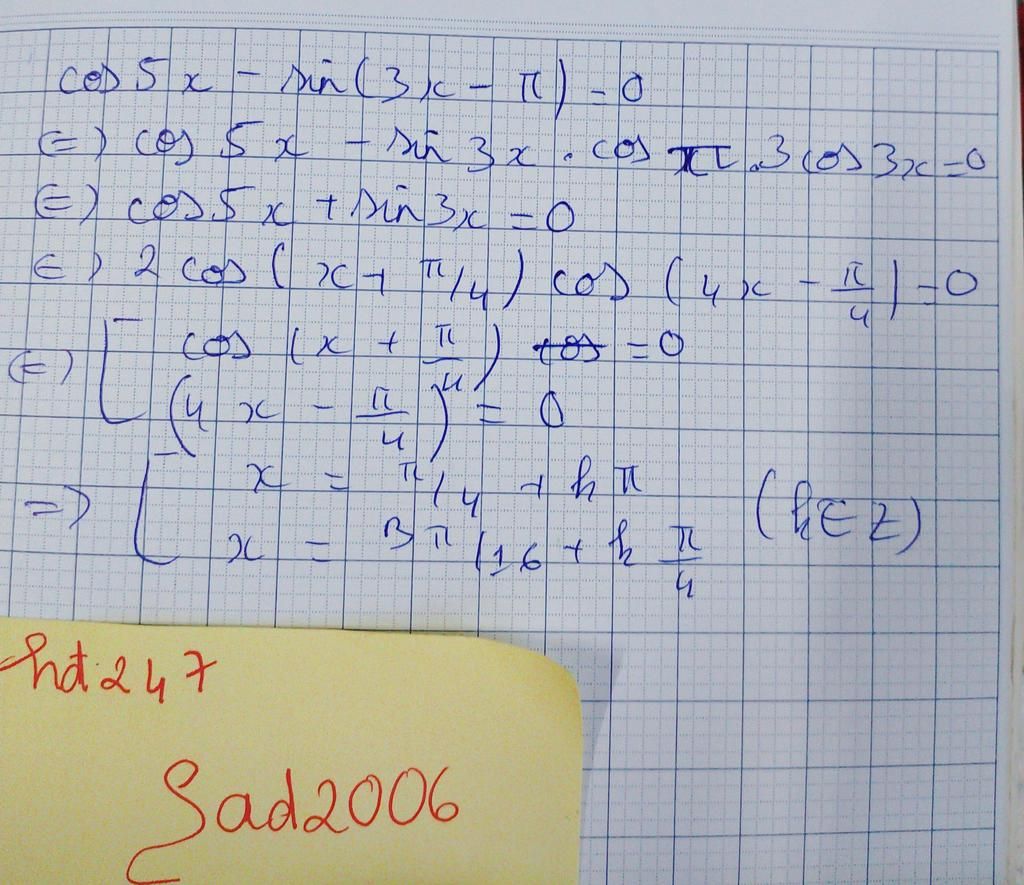 cos 5x - sin(3x - π) = 0
(=) cos 5x - sin 3x . cos π . 3 cos 3x = 0
(=) cos 5x + sin 3x = 0
(=) 2 cos (x + π/4) cos (4x - π/4) = 0
(=) [ cos (x + π/4) cos = 0
(4x - π/4) = 0
=> [ x = π/4 + kπ
x = 3π/16 + k π/4 (k ∈ Z)
hđ247
Sad2006